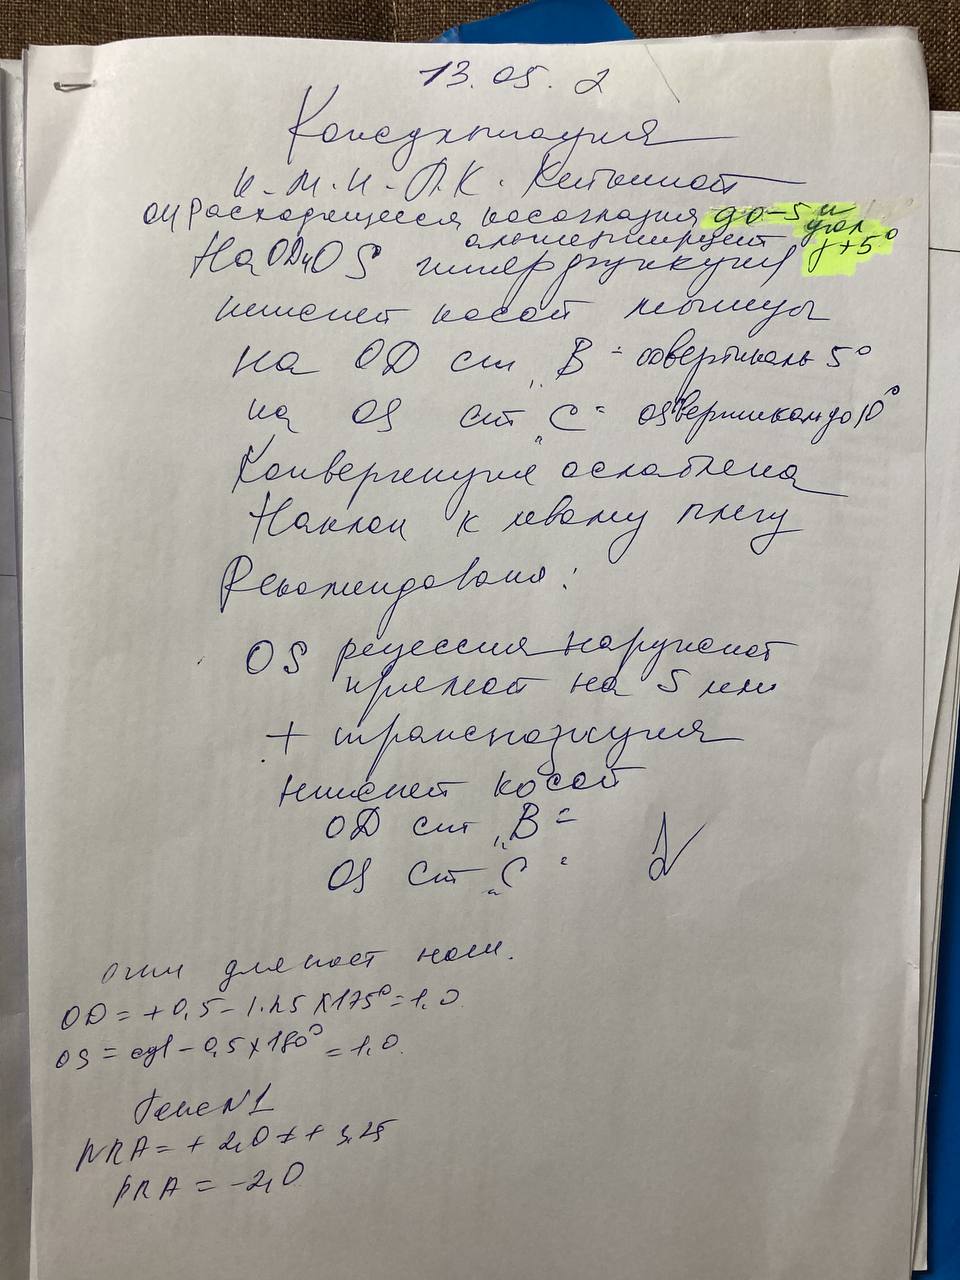 13.05.2
Консультация
к.м.н.
OU Расходящееся косоглазие до -5 и
альтернирует угол γ+5°
На OD и OS гиперфункция
нижней косой мышцы
на OD ст „В" овертикаль 5°
на OS ст „С" os вертикаль до 10°
Конвергенция ослаблена
Наклон к левому плечу
Рекомендована:
OS рецессия наружной
прямой на 5 мм
+ транспозиция
нижней косой
OD ст „В"
OS ст „С"
очки для пост нош.
OD = +0,5 - 1.25 x 175° = 1,0
OS = cyl - 0,5 x 180° = 1,0.
N1
NRA = + 2,0
PRA = -2,0